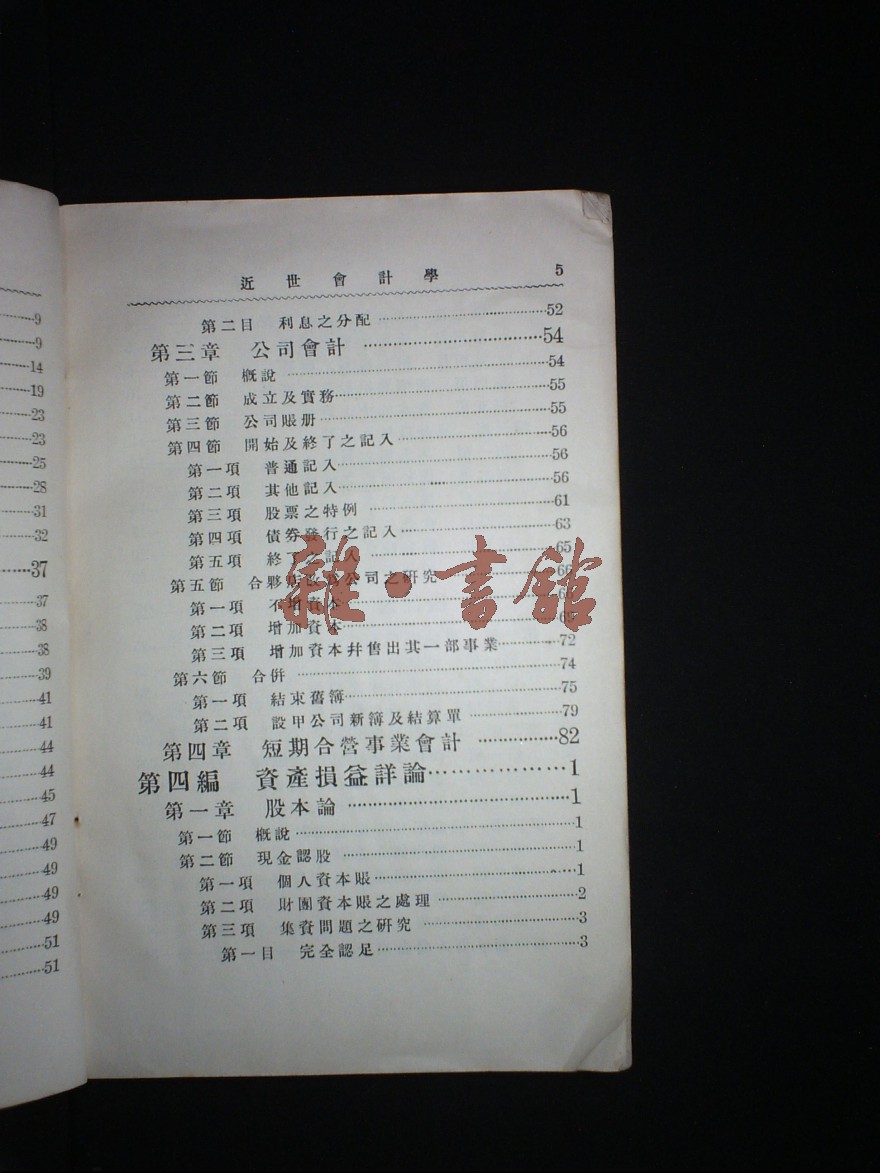 9
9
14
19
23
23
25
28
31
32
37
37
38
38
39
41
41
44
44
45
47
49
49
49
49
51
51
近世會計學 5
第二目 利息之分配 52
第三章 公司會計 54
第一節 概說 54
第二節 成立及實務 55
第三節 公司賬册 55
第四節 開始及終了之記入 56
第一項 普通記入 56
第二項 其他記入 56
第三項 股票之特例 61
第四項 債券發行之記入 63
第五項 終了之記入 65
第五節 合夥店改為公司之研究 66
第一項 不增資本
第二項 增加資本 69
第三項 增加資本幷售出其一部事業 72
第六節 合併 74
第一項 結束舊簿 75
第二項 設甲公司新簿及結算單 79
第四章 短期合營事業會計 82
第四編 資產損益詳論 1
第一章 股本論 1
第一節 概說 1
第二節 現金認股 1
第一項 個人資本賬 1
第二項 財團資本賬之處理 2
第三項 集資問題之研究 3
第一目 完全認足 3
雜·書館